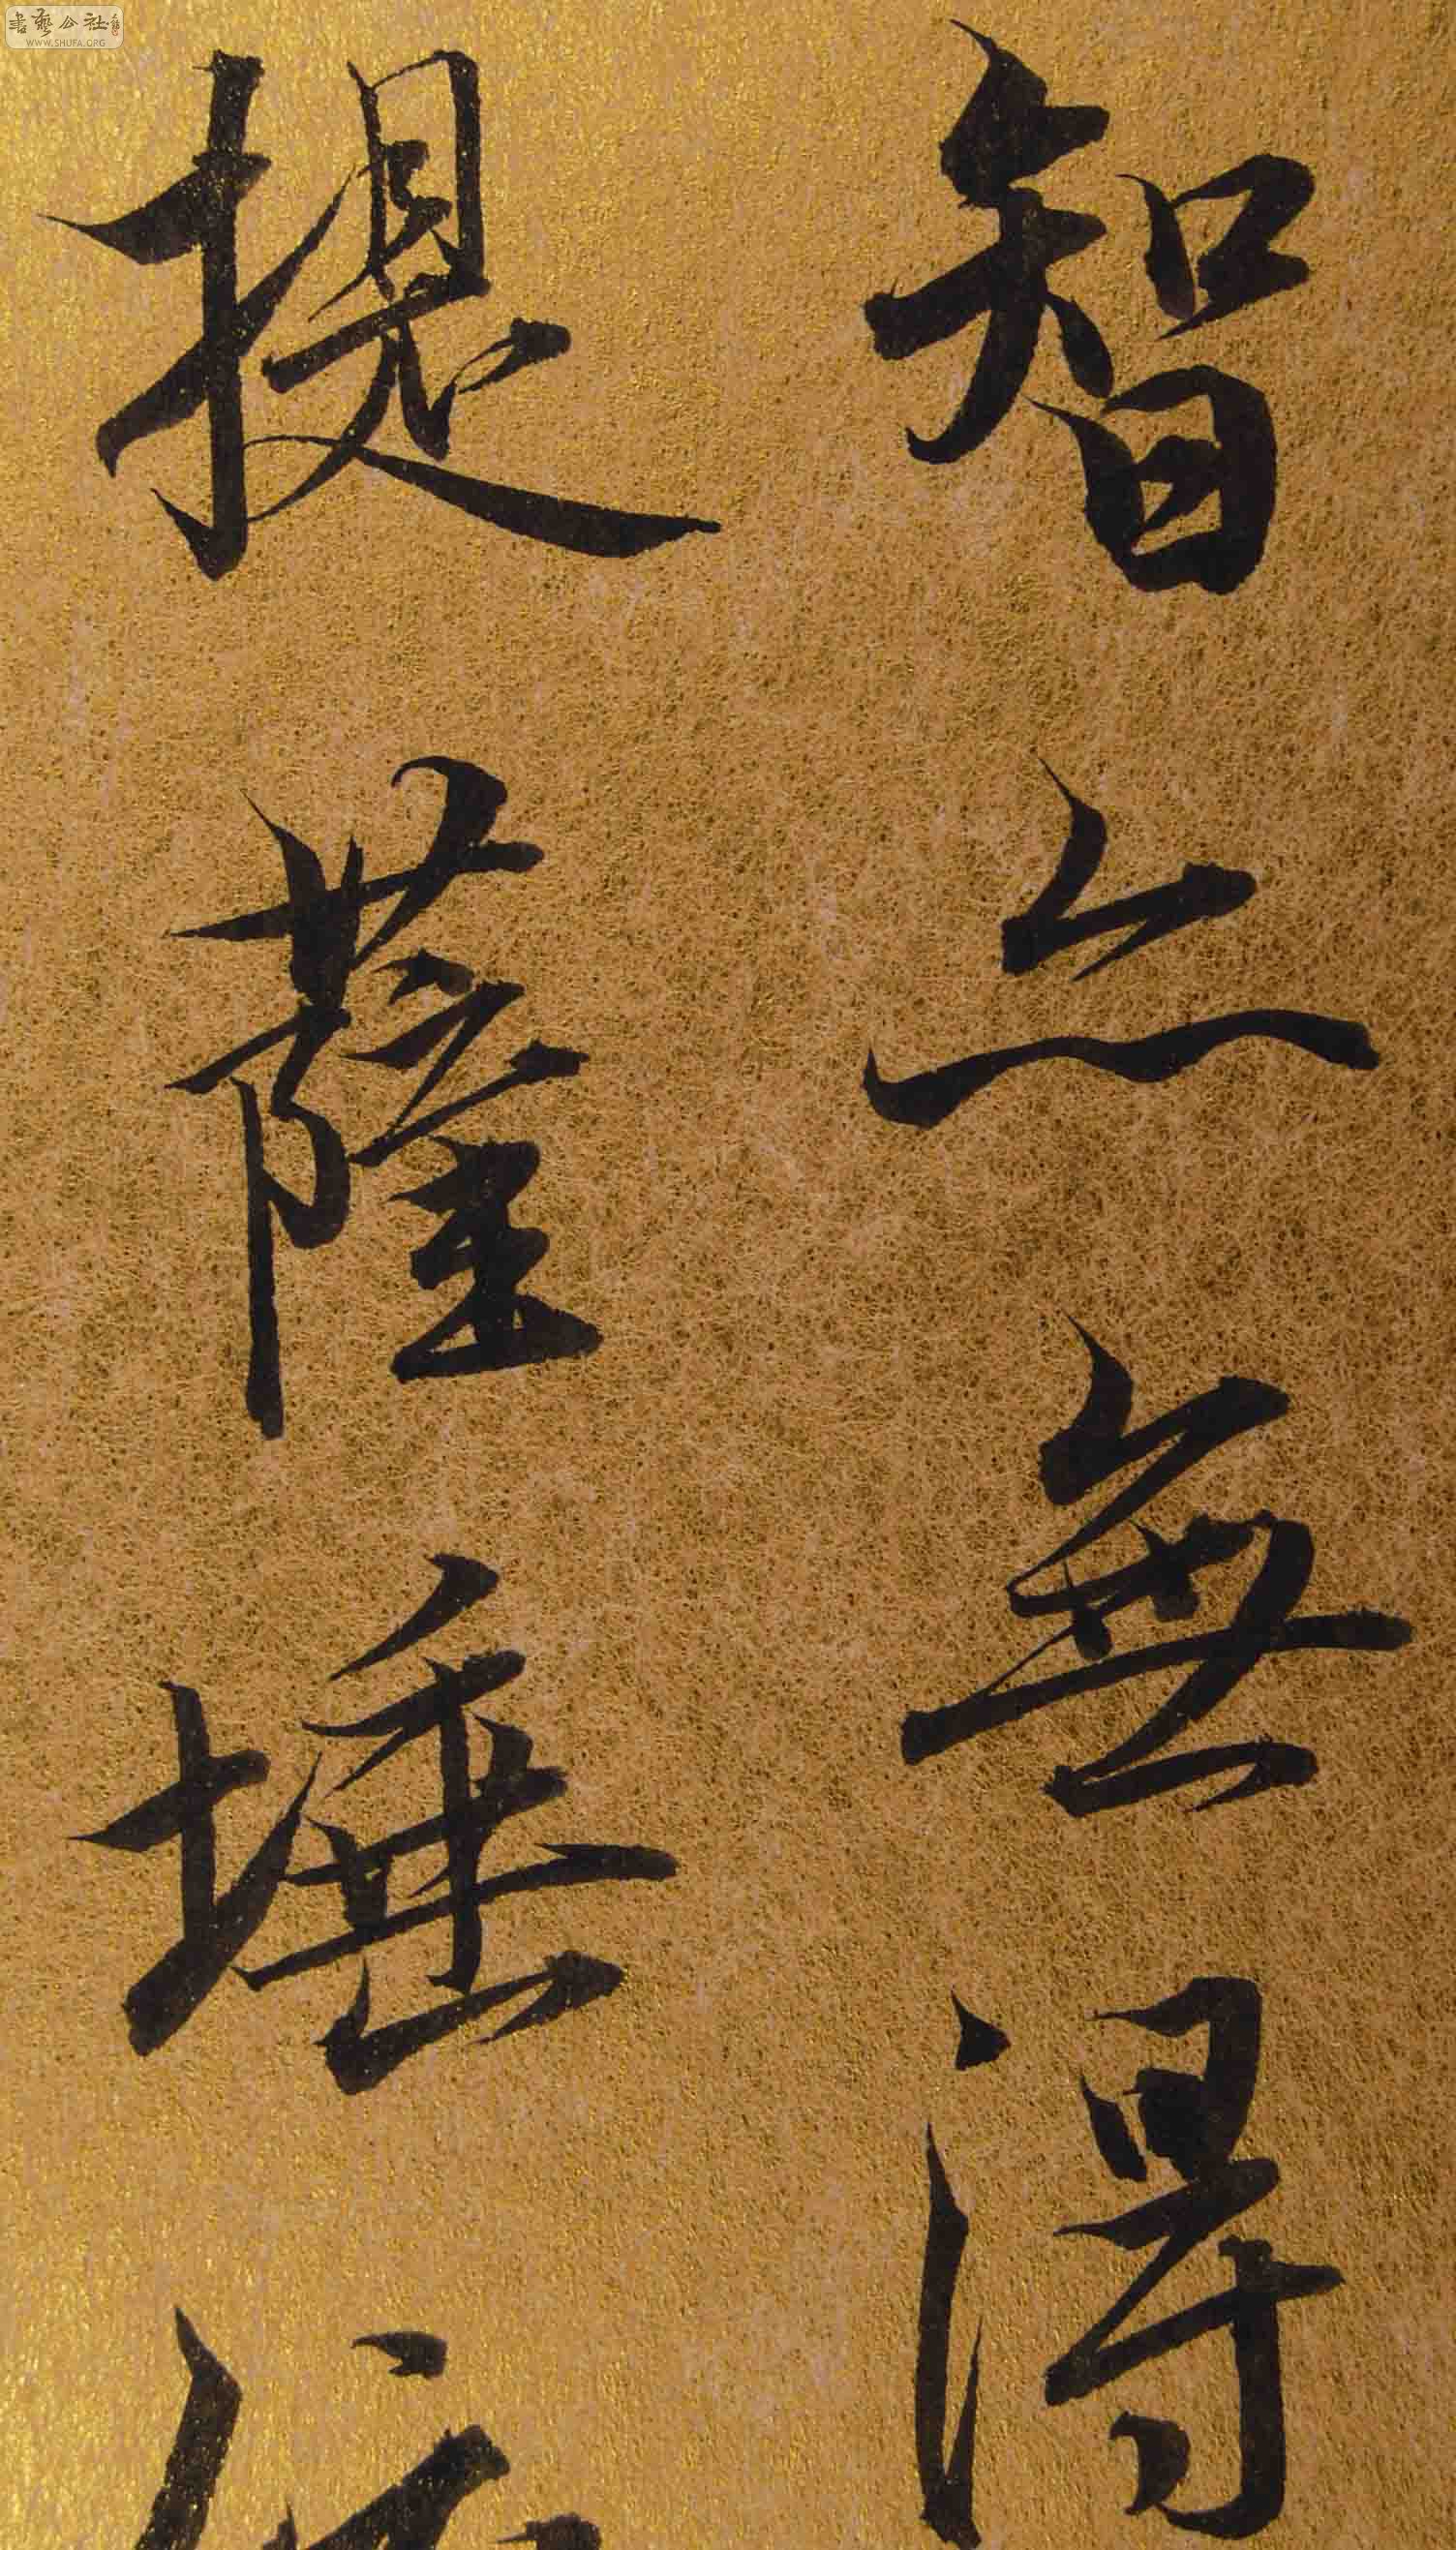 書藝公社
WWW.SHUFA.ORG
智亦無得
提薩埵依